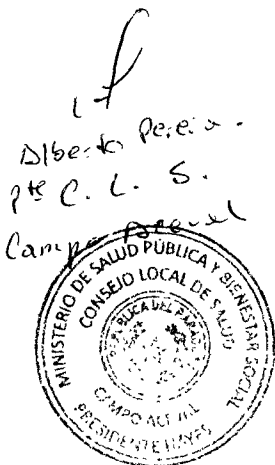 Alberto Pereira.
Pte C. L. S.
Campo Aceval
MINISTERIO DE SALUD PÚBLICA Y BIENESTAR SOCIAL
CONSEJO LOCAL DE SALUD
REPÚBLICA DEL PARAGUAY
CAMPO ACEVAL
PRESIDENTE HAYES